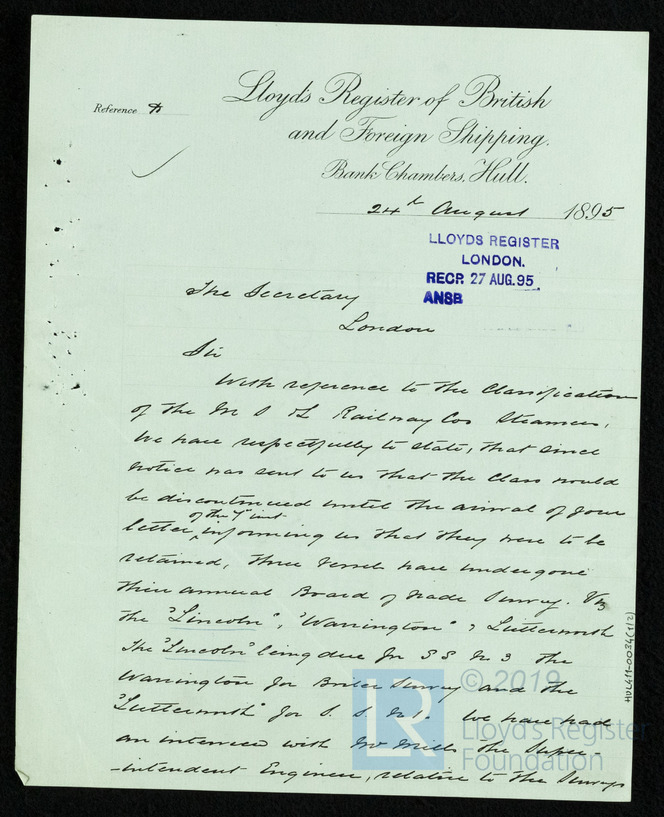 Lloyd's Register of British
and Foreign Shipping.
Reference
Bank Chambers, Hull.
24th August 1895
LLOYDS REGISTER
LONDON.
RECD. 27 AUG.95
ANSD
The Secretary
London
Sir
With reference to the Classification
of the M S & L Railway Cos Steamers,
We have respectfully to state, that since
notice was sent to us that the Class would
be discontinued until the arrival of your
of the 7th inst
letter, informing us that they were to be
retained, three vessels have undergone
their annual Board of Trade Survey. Viz
the "Lincoln", "Warrington" & Lutterworth
The "Lincoln" being due for S S No 3 the
Warrington for Boiler Survey and the
"Lutterworth" for S. S. No. We have had
an interview with Mr Mills the Super-
-intendent Engineer, relative to the Surveys
HUL411-0034(1/2)
© 2019
LR
Lloyd's Register
Foundation